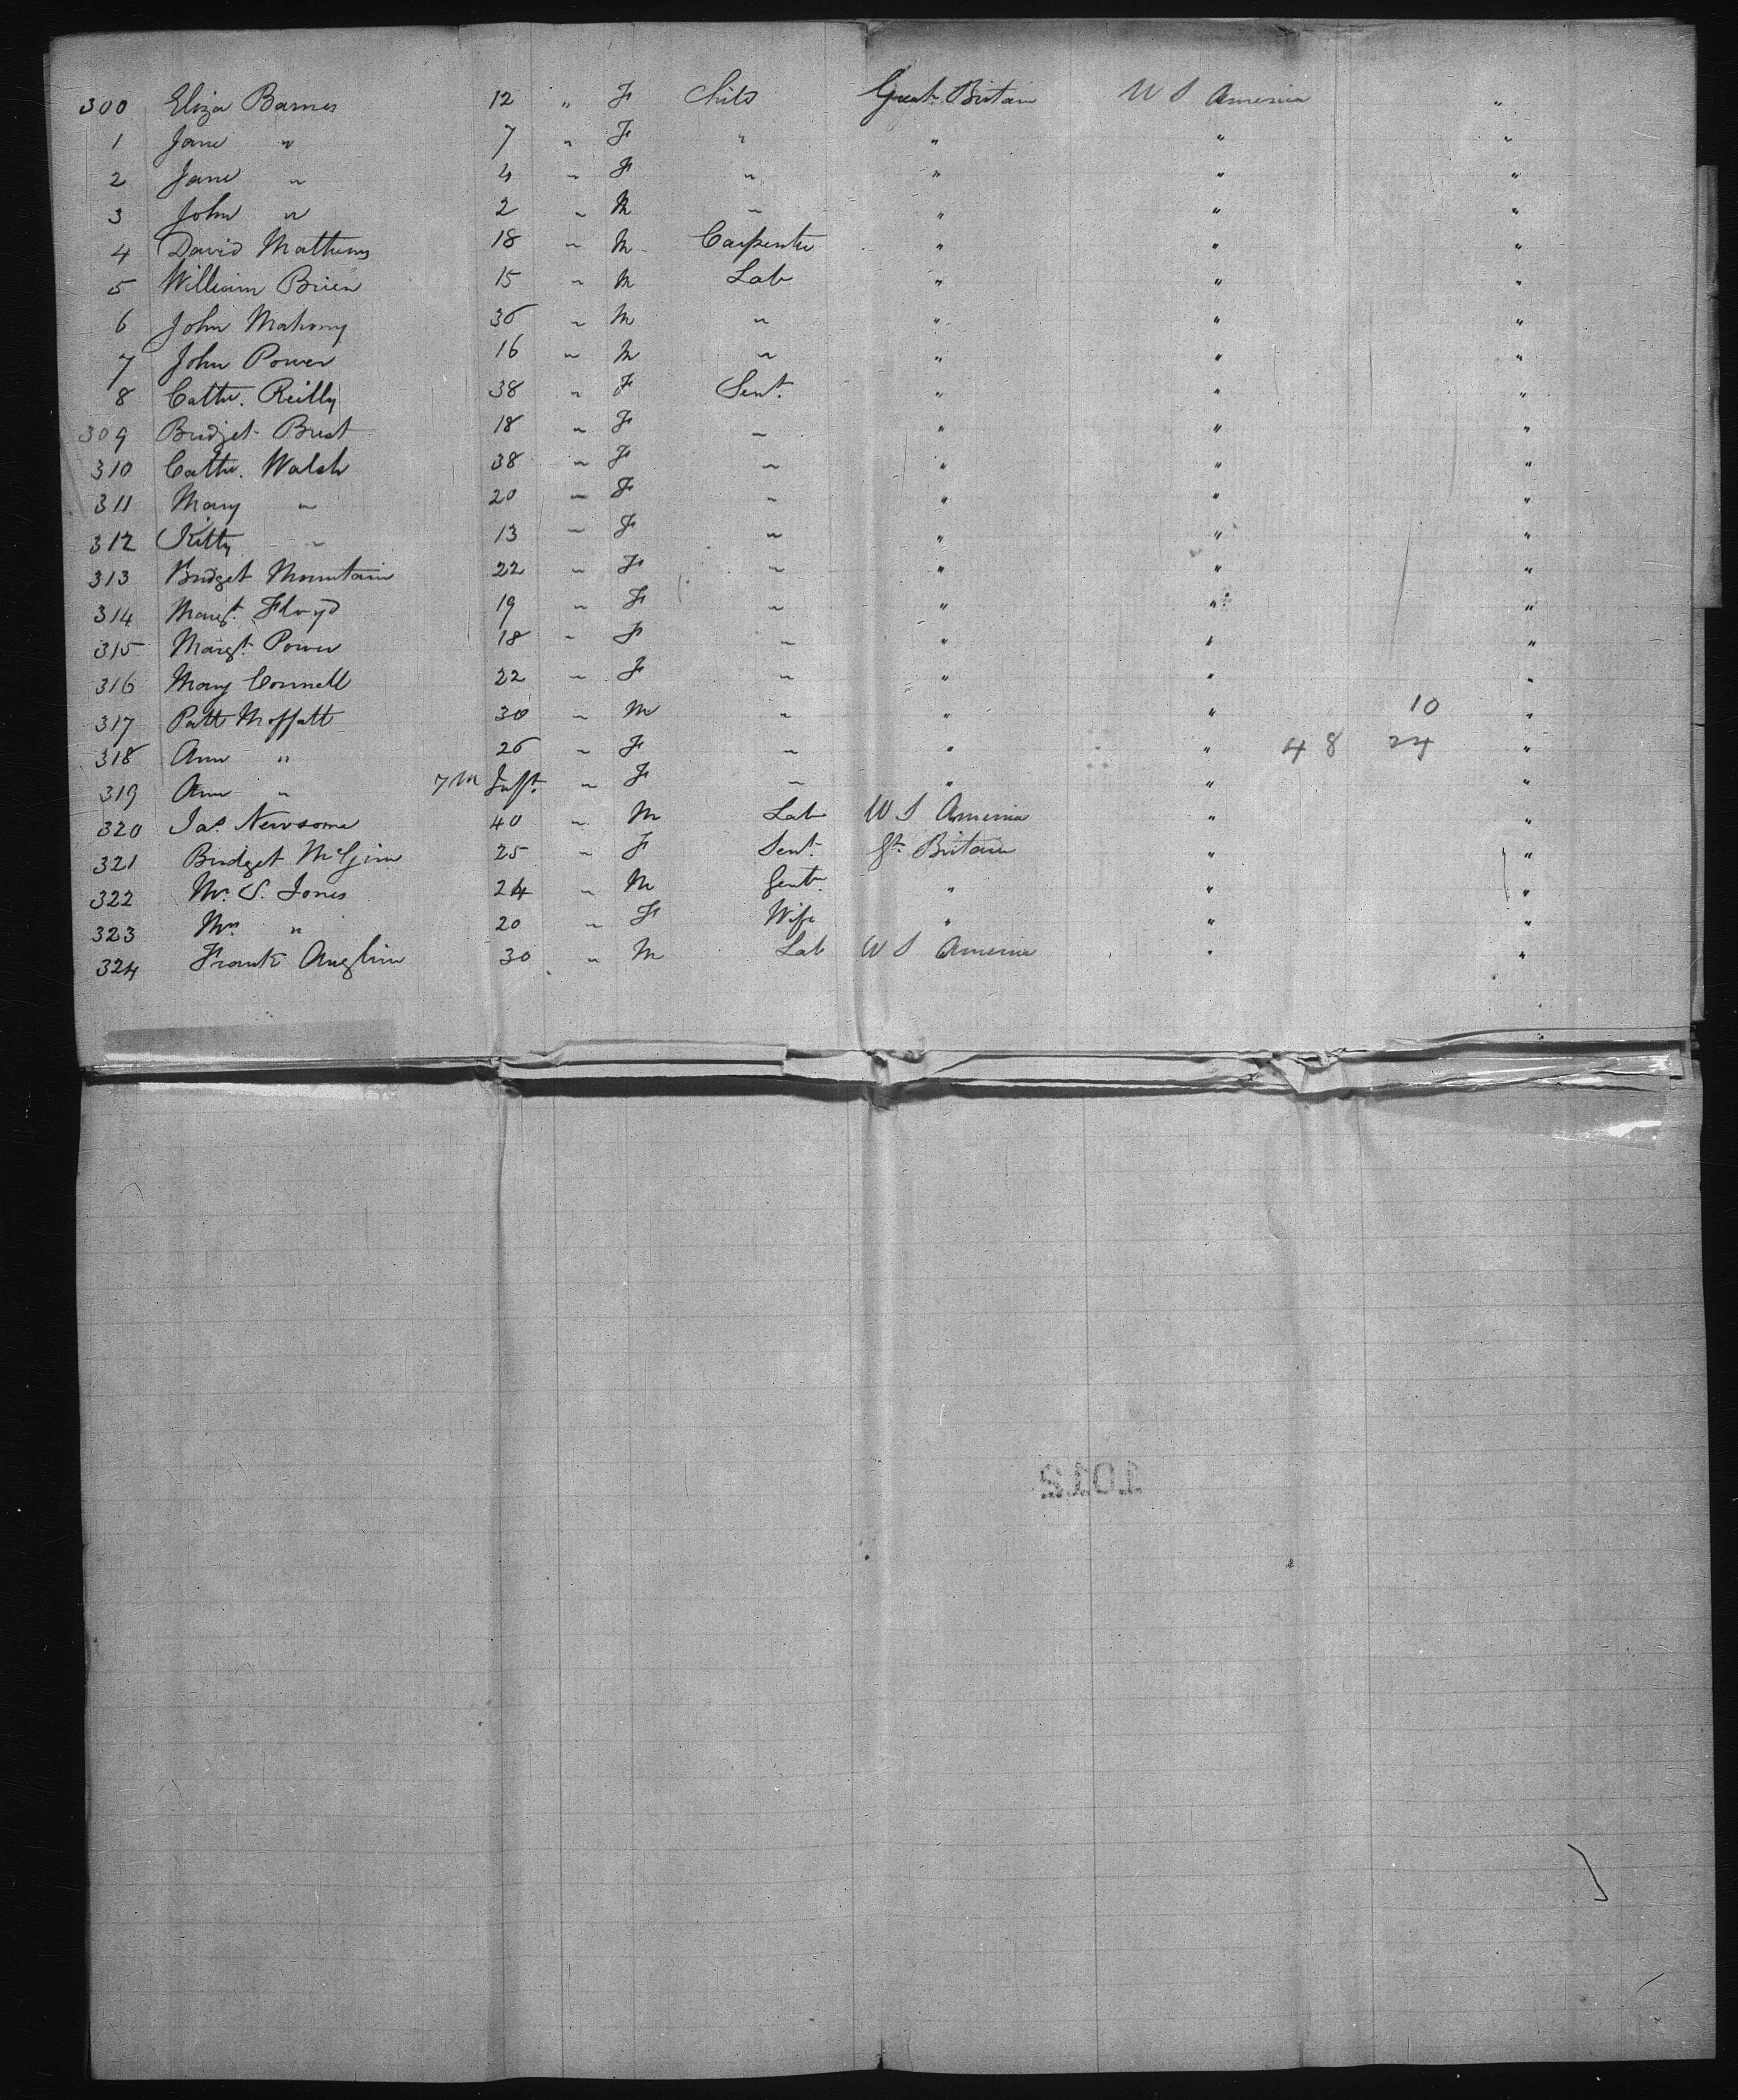 300 Eliza Barnes 12 " F Child Great Britain U S America "
1 Jane " 7 " F " " " "
2 Jane " 4 " F " " " "
3 John " 2 " M " " " "
4 David Mathews 18 " M Carpenter " " "
5 William Brien 15 " M Lab " " "
6 John Mahony 36 " M " " " "
7 John Power 16 " M " " " "
8 Cathe. Reilly 38 " F Sert. " " "
309 Bridget 18 " F " " " "
310 Cathe. Walsh 38 " F " " " "
311 Mary " 20 " F " " " "
312 Kitty " 13 " F " " " "
313 Bridget Mountain 22 " F " " " "
314 Margt. Floyd 19 " F " " " "
315 Margt. Power 18 " F " " " "
316 Mary Connell 22 " F " " " "
317 Patt Moffatt 30 " M " " " 10 "
318 Ann " 26 " F " " " 48 24 "
319 Ann " 7 M Inft. " F " " " "
320 Jas. Newsome 40 " M Lab U S America " "
321 Bridget McGinn 25 " F Sert. Gt. Britain " "
322 Mr. S. Jones 24 " M Gentn. " " "
323 Mrs " 20 " F Wife " " "
324 Frank Anglim 30 " M Lab U S America " "
1012